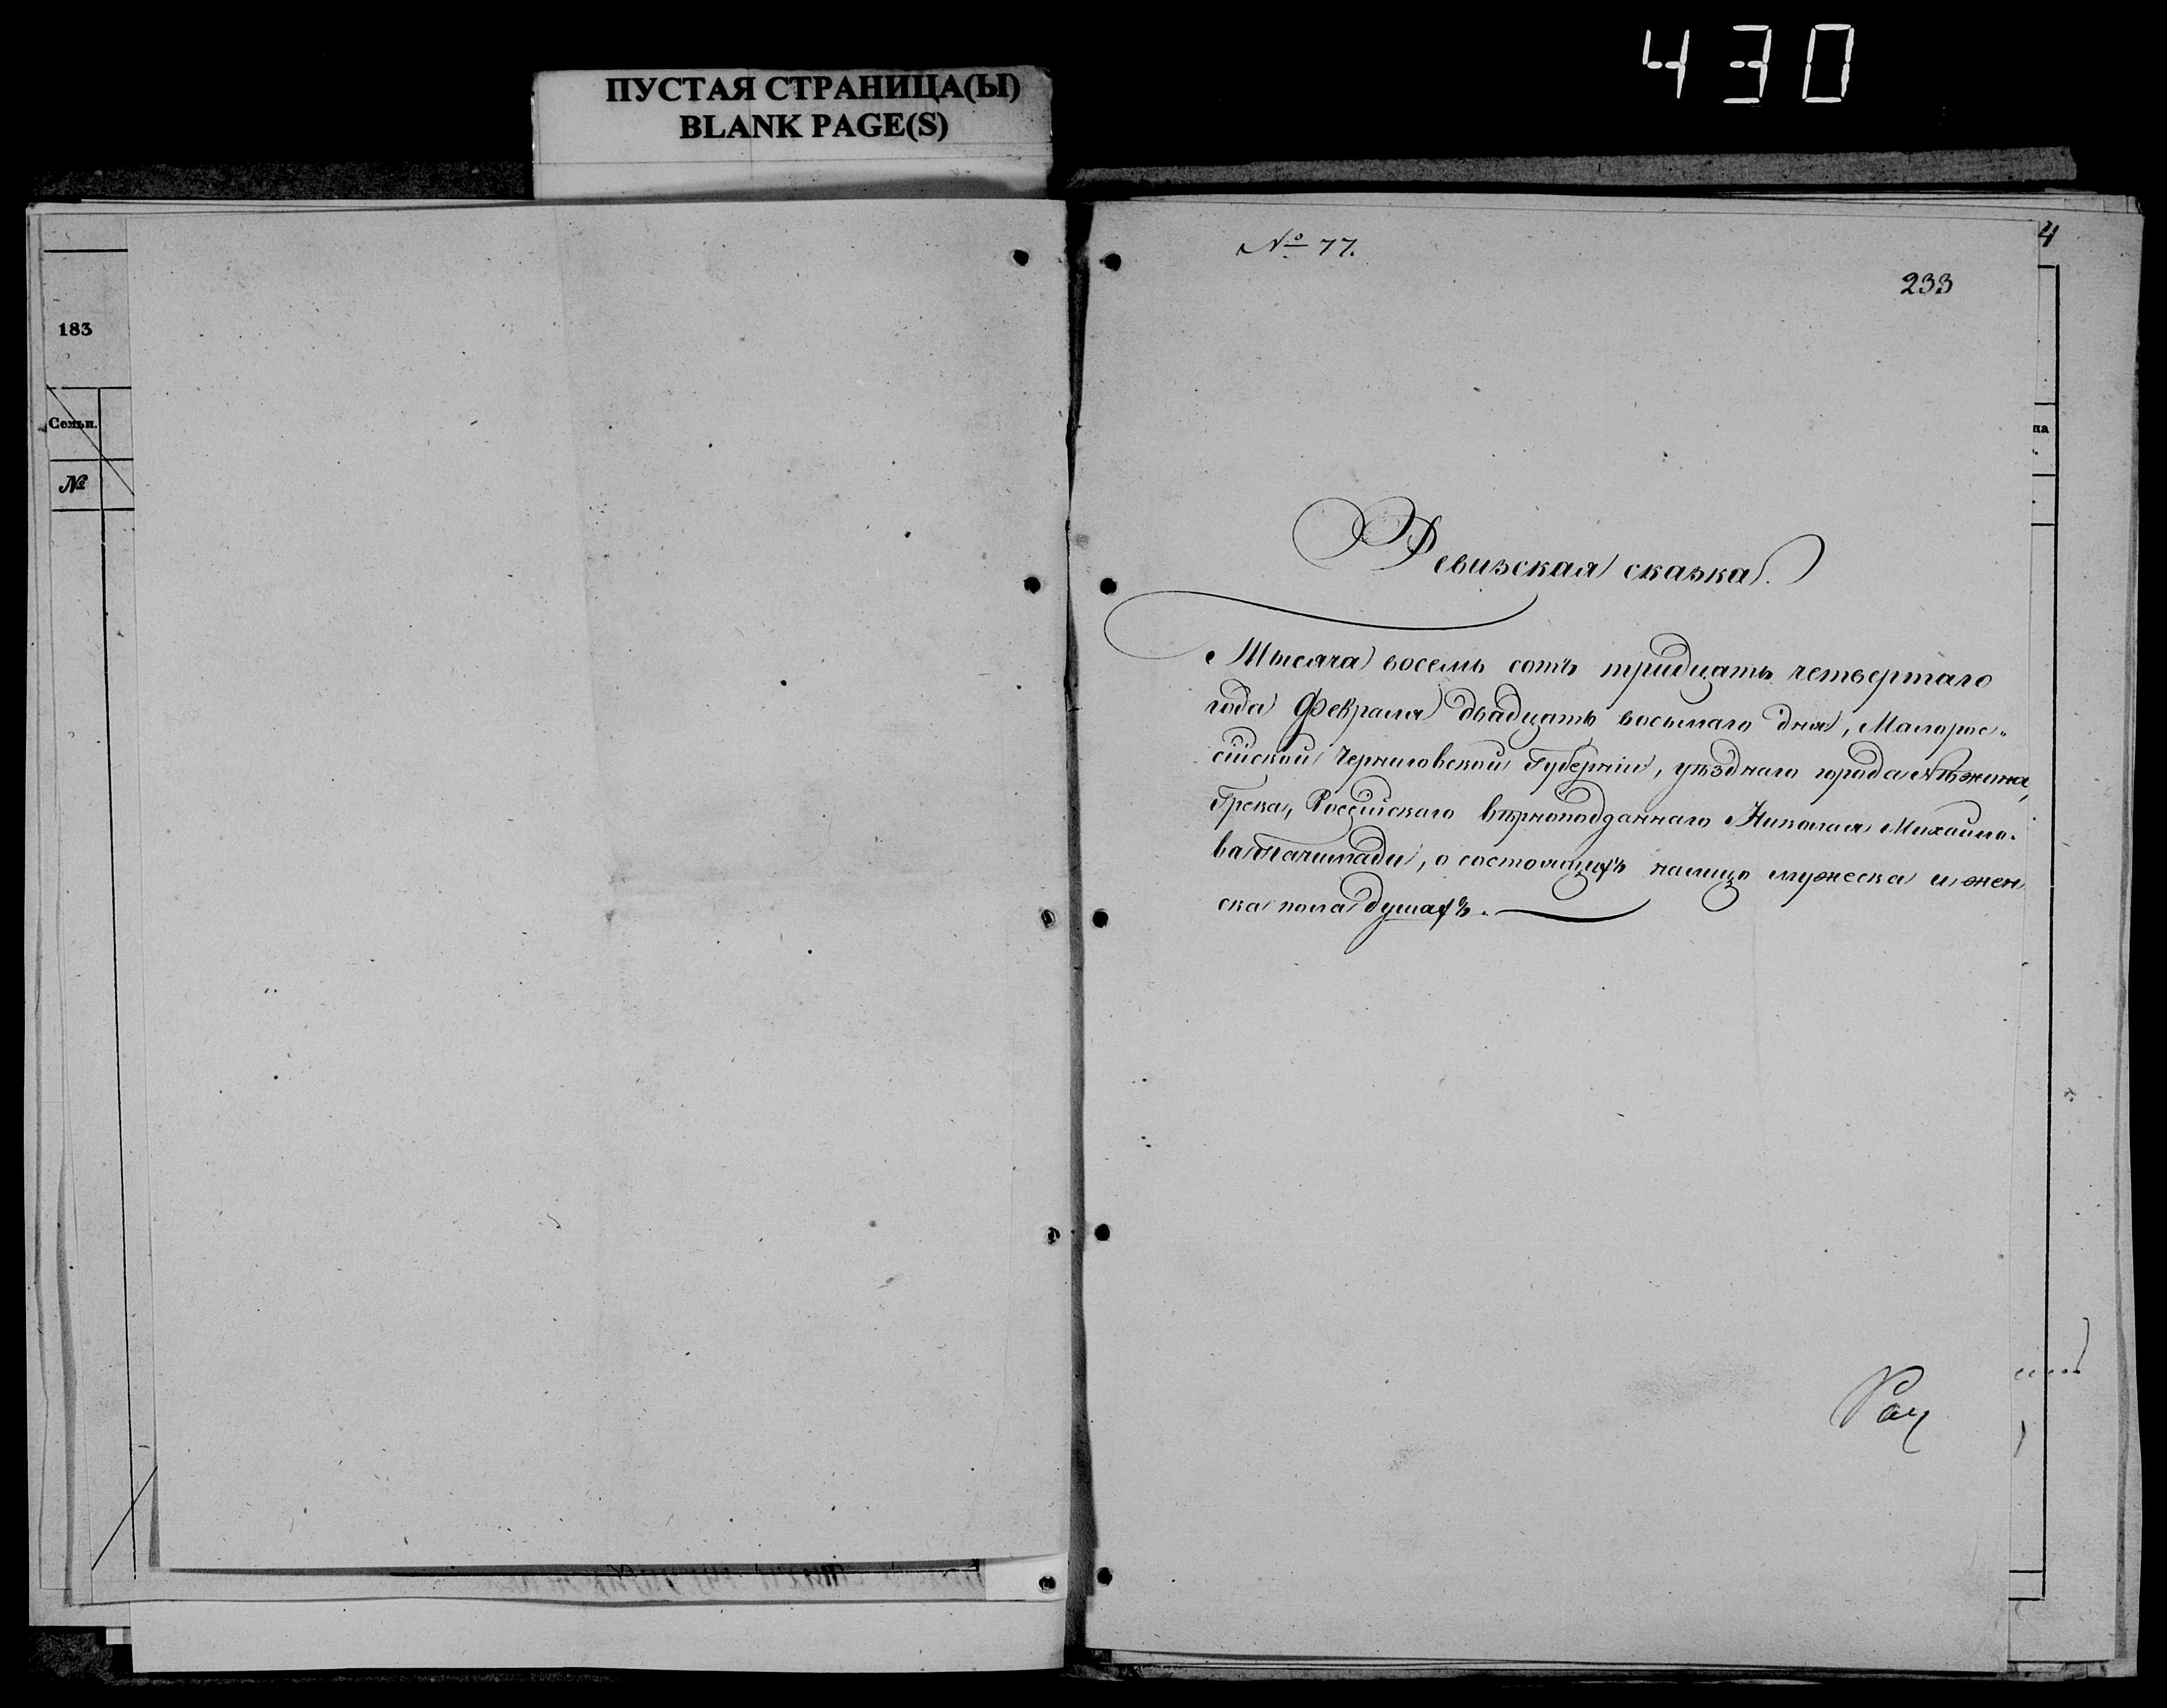 430
ПУСТАЯ СТРАНИЦА(Ы)
BLANK PAGE(S)
183
Семьи.
№
№ 77.
4
233
па
Ревизская сказка.
Тысяча восемь сотъ тридцать четвертаго
года Февраля двадцать восьмаго дня, Малорос-
сійской Черниговской Губерніи, уѣзднаго города Нѣжина,
Грека, Россійскаго вѣрноподданнаго Николая Михайло-
ва, о состоящихъ налицо мужеска и жен
ска пола душахъ.